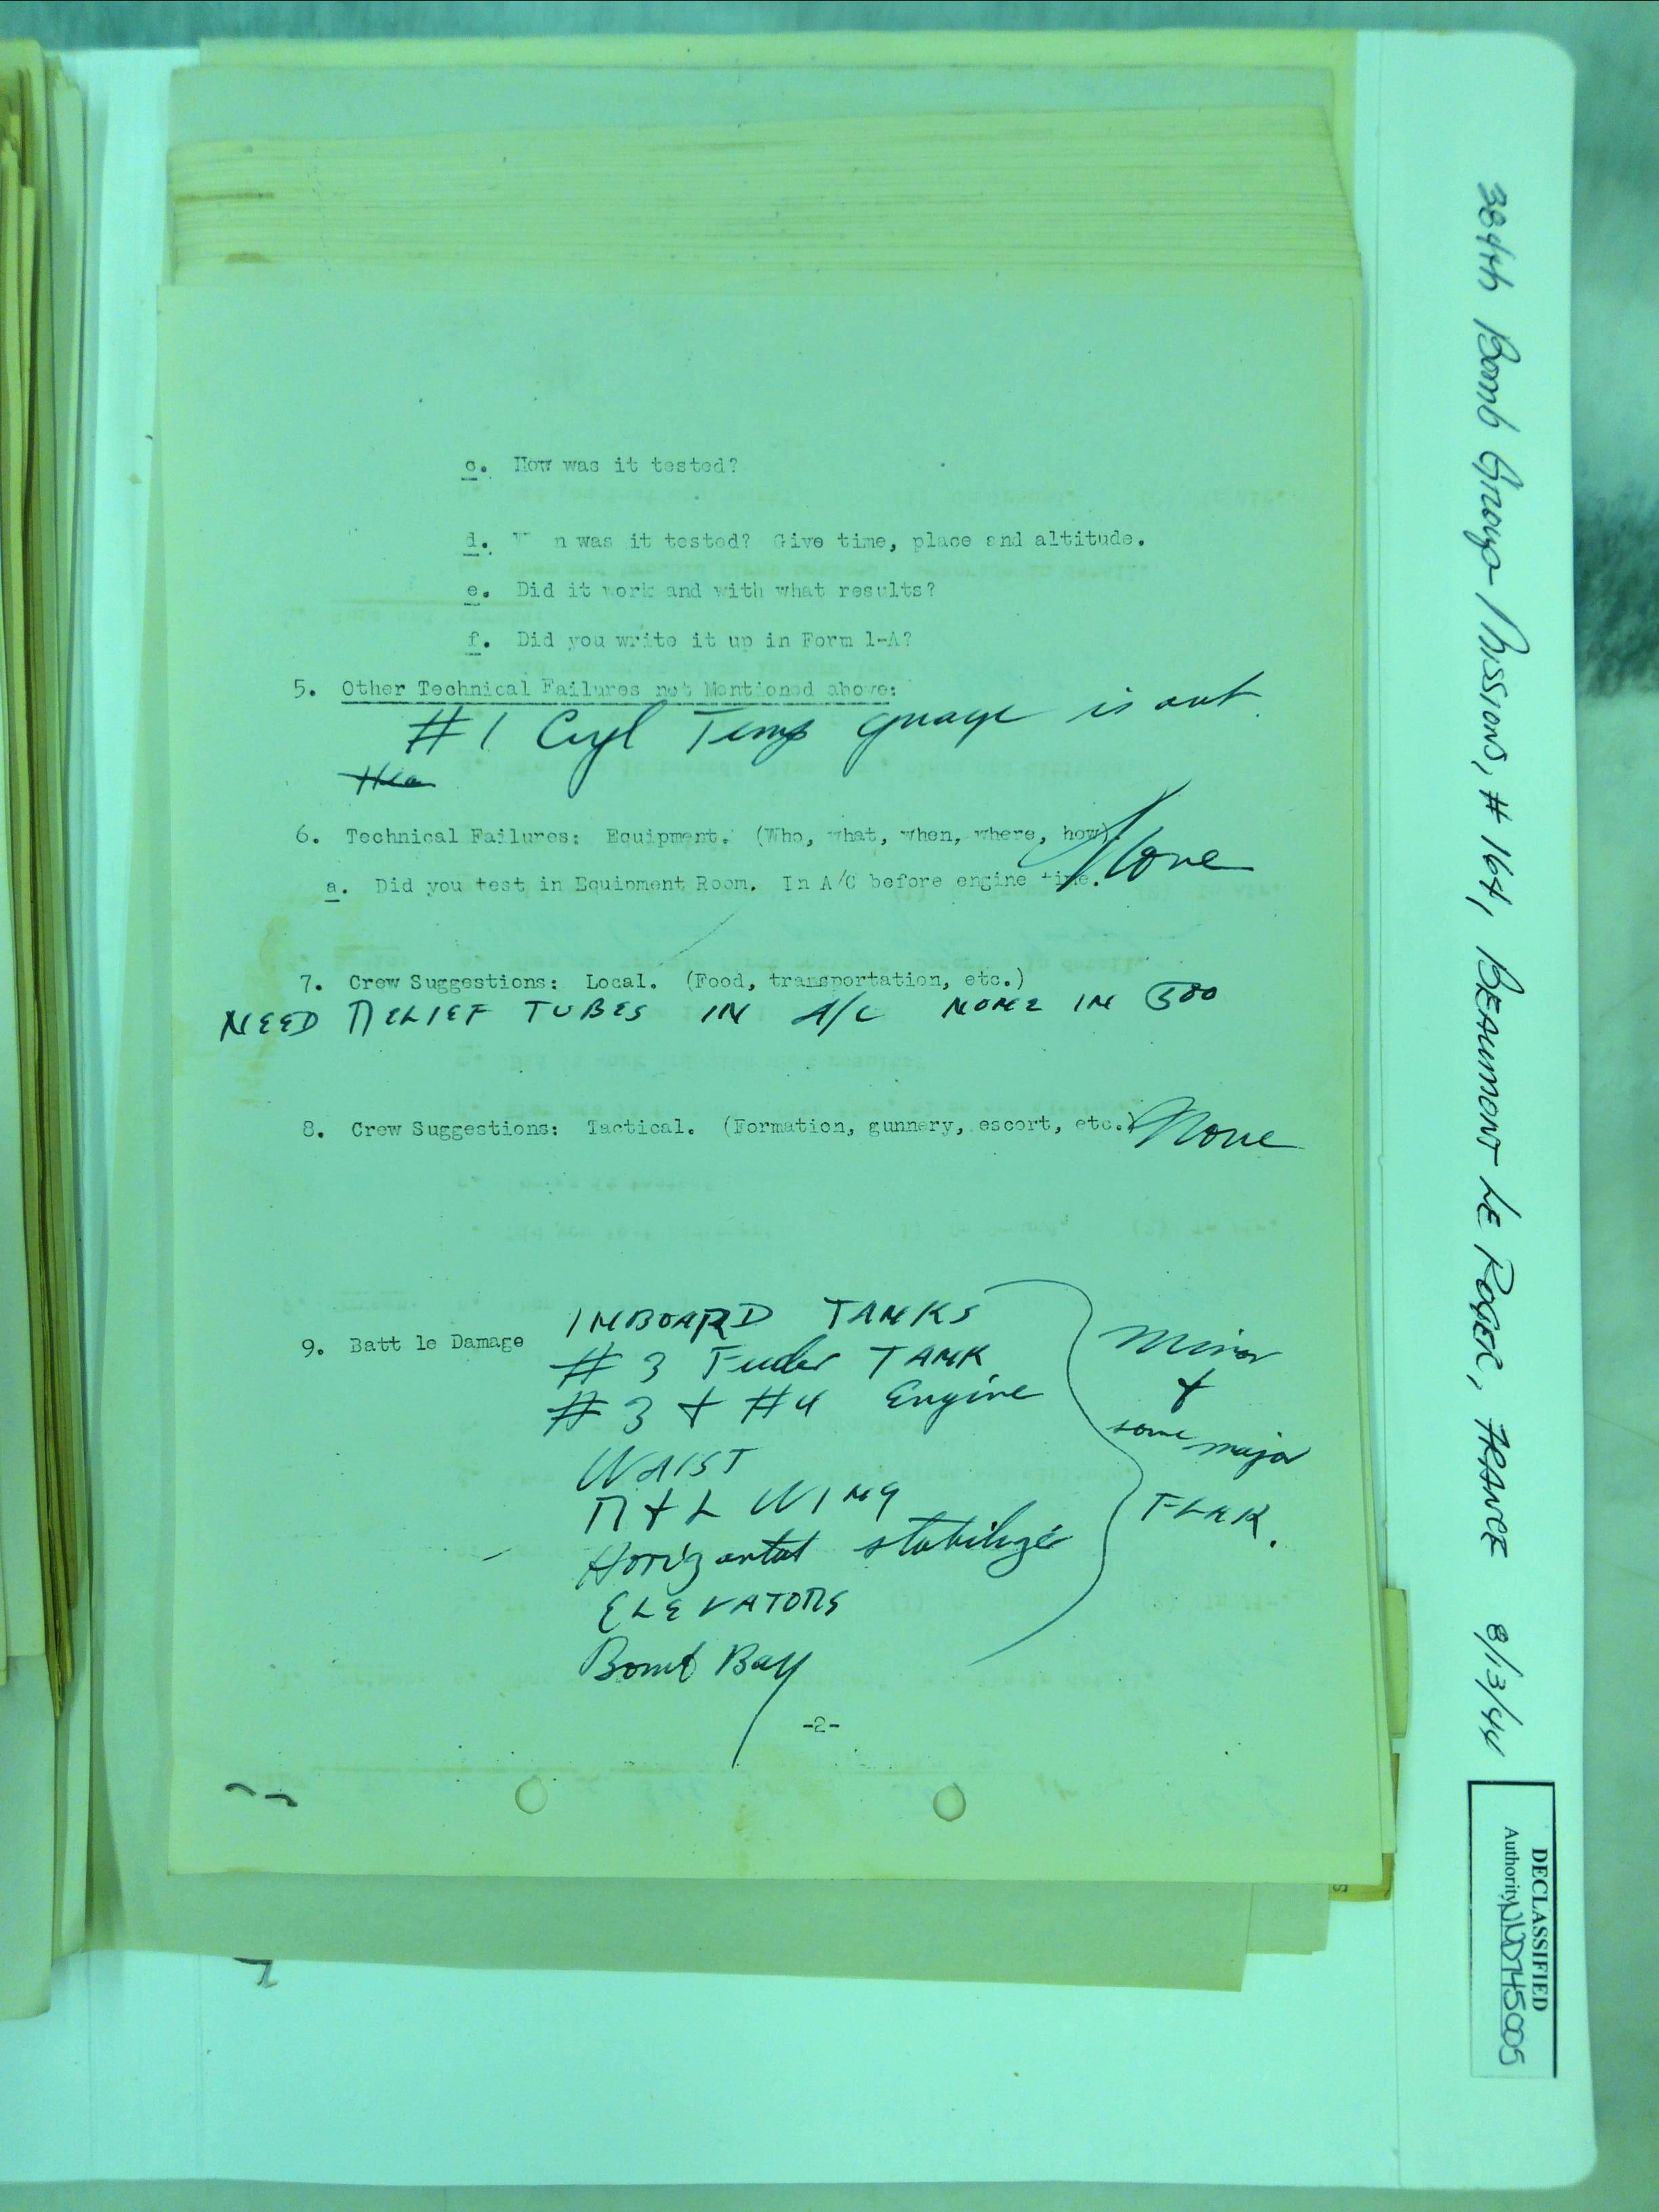 c. How was it tested?
d. n was it tested? Give time, place and altitude.
e. Did it work and with what results?
f. Did you write it up in Form 1-A?
5. Other Technical Failures not Mentioned above:
#1 Cyl Temp guage is out.
6. Technical Failures: Equipment. (Who, what, when, where, how).
None
a. Did you test in Equipment Room. In A/C before engine time.
7. Crew Suggestions: Local. (Food, transportation, etc.)
NEED RELIEF TUBES IN A/C NONE IN 500
8. Crew Suggestions: Tactical. (Formation, gunnery, escort, etc.) None
9. Batt le Damage
INBOARD TANKS
# 3 Feeder TANK
# 3 + #4 Engine
WAIST
R + L WING
Horizontal stabilizer
ELEVATORS
Bomb Bay
Minor
+
some major
FLAK.
-2-
384th Bomb Group Missions, # 164, BEAUMONT LE ROGER, FRANCE 8/13/44
DECLASSIFIED
Authority NND745005